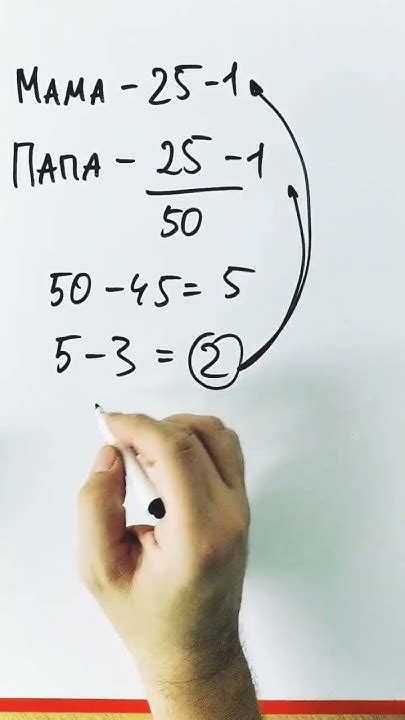 МАМА – 25 – 1
ПАПА – 25 – 1
50
50 – 45 = 5
5 – 3 = 2